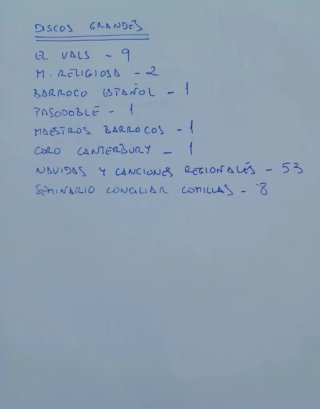 DISCOS GRANDES
EL VALS - 9
M. RELIGIOSA - 2
BARROCO ESPAÑOL - 1
PASODOBLE - 1
MAESTROS BARROCOS - 1
CORO CANTERBURY - 1
NAVIDAD Y CANCIONES REGIONALES - 53
SEMINARIO CONCILIAR COMILLAS - 8